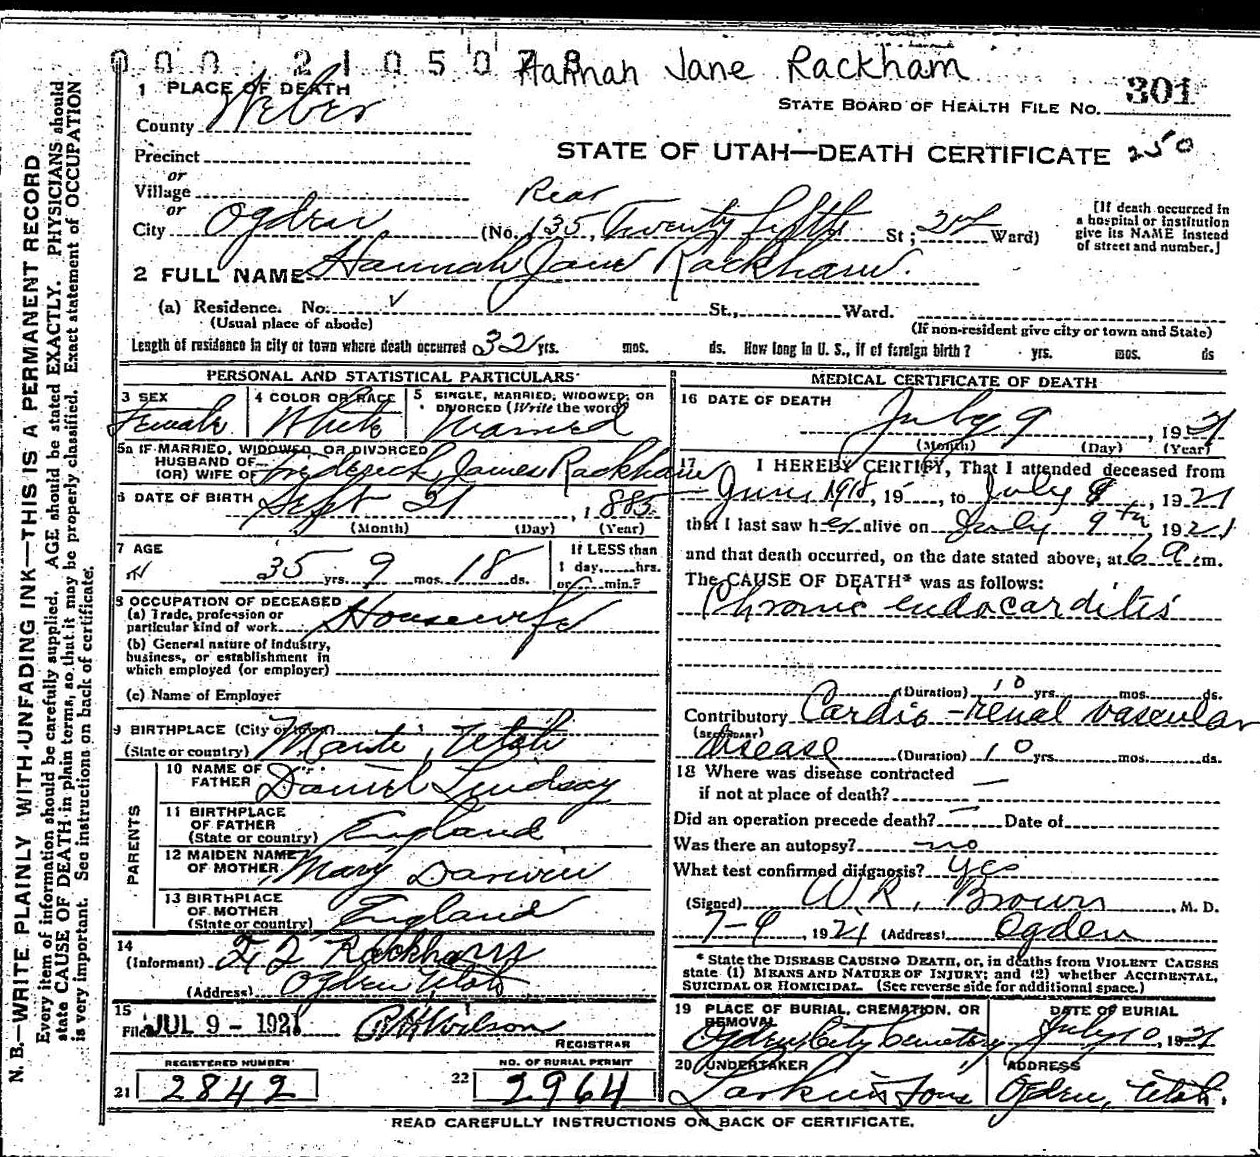 000 2105078 Hannah Jane Rackham
1 PLACE OF DEATH
County Weber
STATE BOARD OF HEALTH FILE NO. 301
Precinct
STATE OF UTAH—DEATH CERTIFICATE 250
or
Village
or
Rear
City Ogden (No. 135, Twenty fifth St; 2nd Ward)
[If death occurred in
a hospital or institution
give its NAME instead
of street and number.]
2 FULL NAME Hannah Jane Rackham.
(a) Residence. No. ✓ St., Ward.
(Usual place of abode) (If non-resident give city or town and State)
Length of residence in city or town where death occurred 32 yrs. mos. ds. How long in U. S., if of foreign birth? yrs. mos. ds
PERSONAL AND STATISTICAL PARTICULARS
3 SEX Female
4 COLOR OR RACE White
5 SINGLE, MARRIED, WIDOWED, OR
DIVORCED (Write the word)
Married
5a IF MARRIED, WIDOWED, OR DIVORCED
HUSBAND OF
(OR) WIFE OF Frederick James Rackham
6 DATE OF BIRTH Sept 21, 1885
(Month) (Day) (Year)
7 AGE
35 yrs. 9 mos. 18 ds.
If LESS than
1 day, hrs.
or min.?
8 OCCUPATION OF DECEASED
(a) Trade, profession or
particular kind of work Housewife
(b) General nature of industry,
business, or establishment in
which employed (or employer)
(c) Name of Employer
9 BIRTHPLACE (City or town)
(State or country) Manti, Utah
PARENTS
10 NAME OF
FATHER Daniel Lindsay
11 BIRTHPLACE
OF FATHER
(State or country) England
12 MAIDEN NAME
OF MOTHER Mary Darwin
13 BIRTHPLACE
OF MOTHER
(State or country) England
14
(Informant) Rackham
(Address) Ogden Utah
15
Filed JUL 9 - 1921 Wilson
REGISTRAR
REGISTERED NUMBER
21 2842
NO. OF BURIAL PERMIT
22 2964
MEDICAL CERTIFICATE OF DEATH
16 DATE OF DEATH
July 9, 1921
(Month) (Day) (Year)
17 I HEREBY CERTIFY, That I attended deceased from
June 1918, 19 , to July 8, 1921
that I last saw her alive on July 9th 1921
and that death occurred, on the date stated above, at 6 a.m.
The CAUSE OF DEATH* was as follows:
Chronic endocarditis
(Duration) 10 yrs. mos. ds.
Contributory Cardio-renal vascular
(SECONDARY)
disease (Duration) 10 yrs. mos. ds.
18 Where was disease contracted
if not at place of death? —
Did an operation precede death? — Date of
Was there an autopsy? no
What test confirmed diagnosis? yes
(Signed) W.R. Brown, M. D.
7-9, 1921 (Address) Ogden
* State the DISEASE CAUSING DEATH, or, in deaths from VIOLENT CAUSES
state (1) MEANS AND NATURE OF INJURY; and (2) whether ACCIDENTAL,
SUICIDAL OR HOMICIDAL. (See reverse side for additional space.)
19 PLACE OF BURIAL, CREMATION, OR
REMOVAL
Ogden City Cemetery
DATE OF BURIAL
July 10, 1921
20 UNDERTAKER
Larkin & Sons
ADDRESS
Ogden, Utah.
READ CAREFULLY INSTRUCTIONS ON BACK OF CERTIFICATE.
N. B.—WRITE PLAINLY WITH UNFADING INK—THIS IS A PERMANENT RECORD
Every item of information should be carefully supplied. AGE should be stated EXACTLY. PHYSICIANS should
state CAUSE OF DEATH in plain terms, so that it may be properly classified. Exact statement of OCCUPATION
is very important. See instructions on back of certificate.